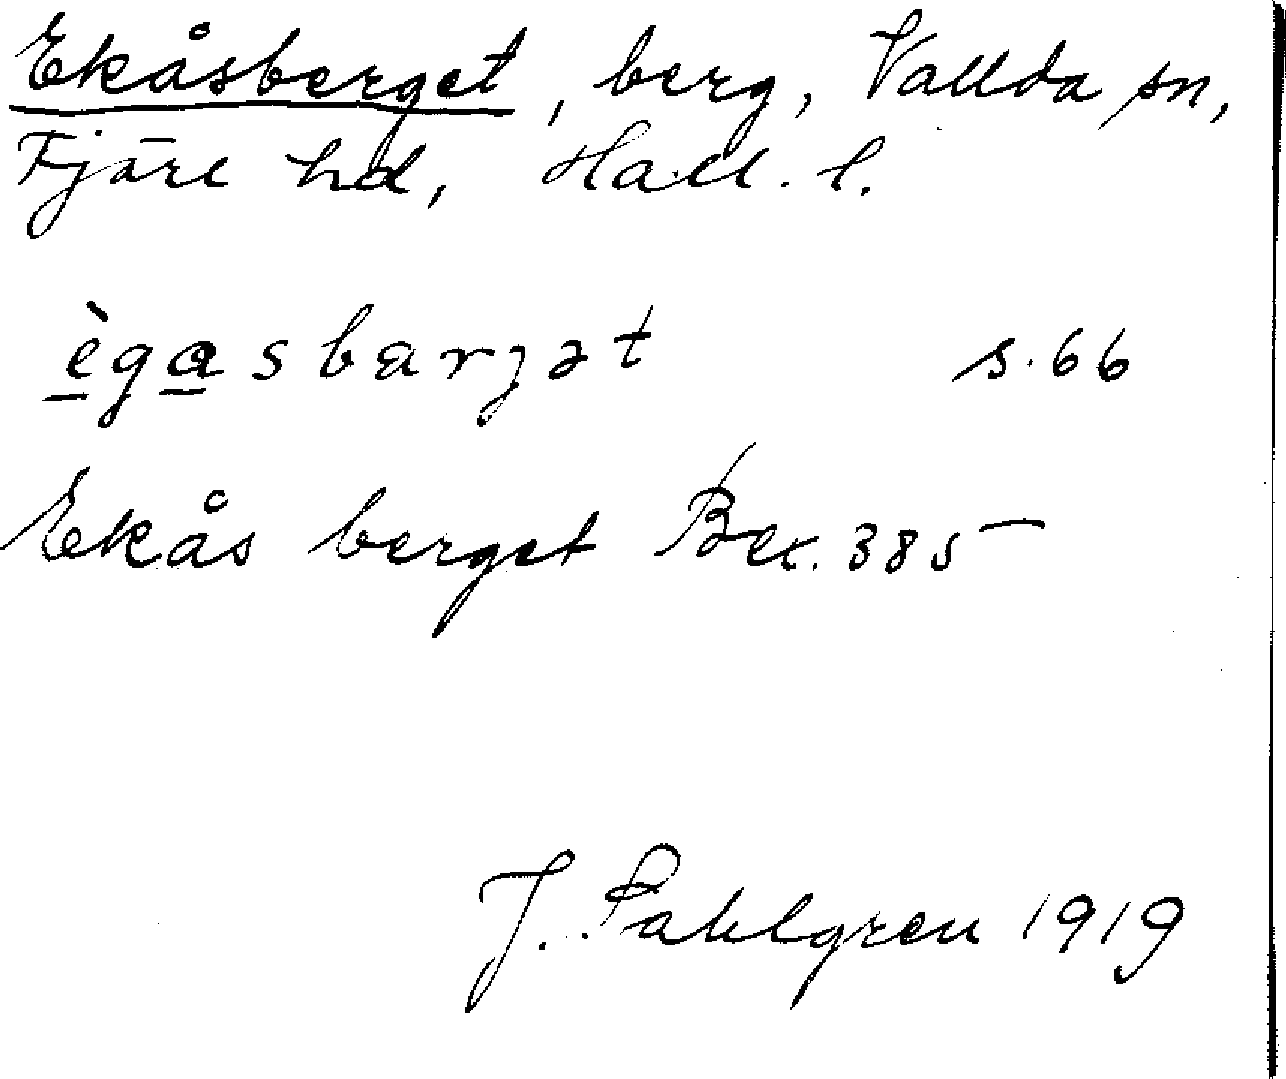 Ekåsberget, berg, Vallda sn,
Fjäre hd, Hall. l.
ègasbarʒət s. 66
Ekås berget Bex. 385
J. Sahlgren 1919